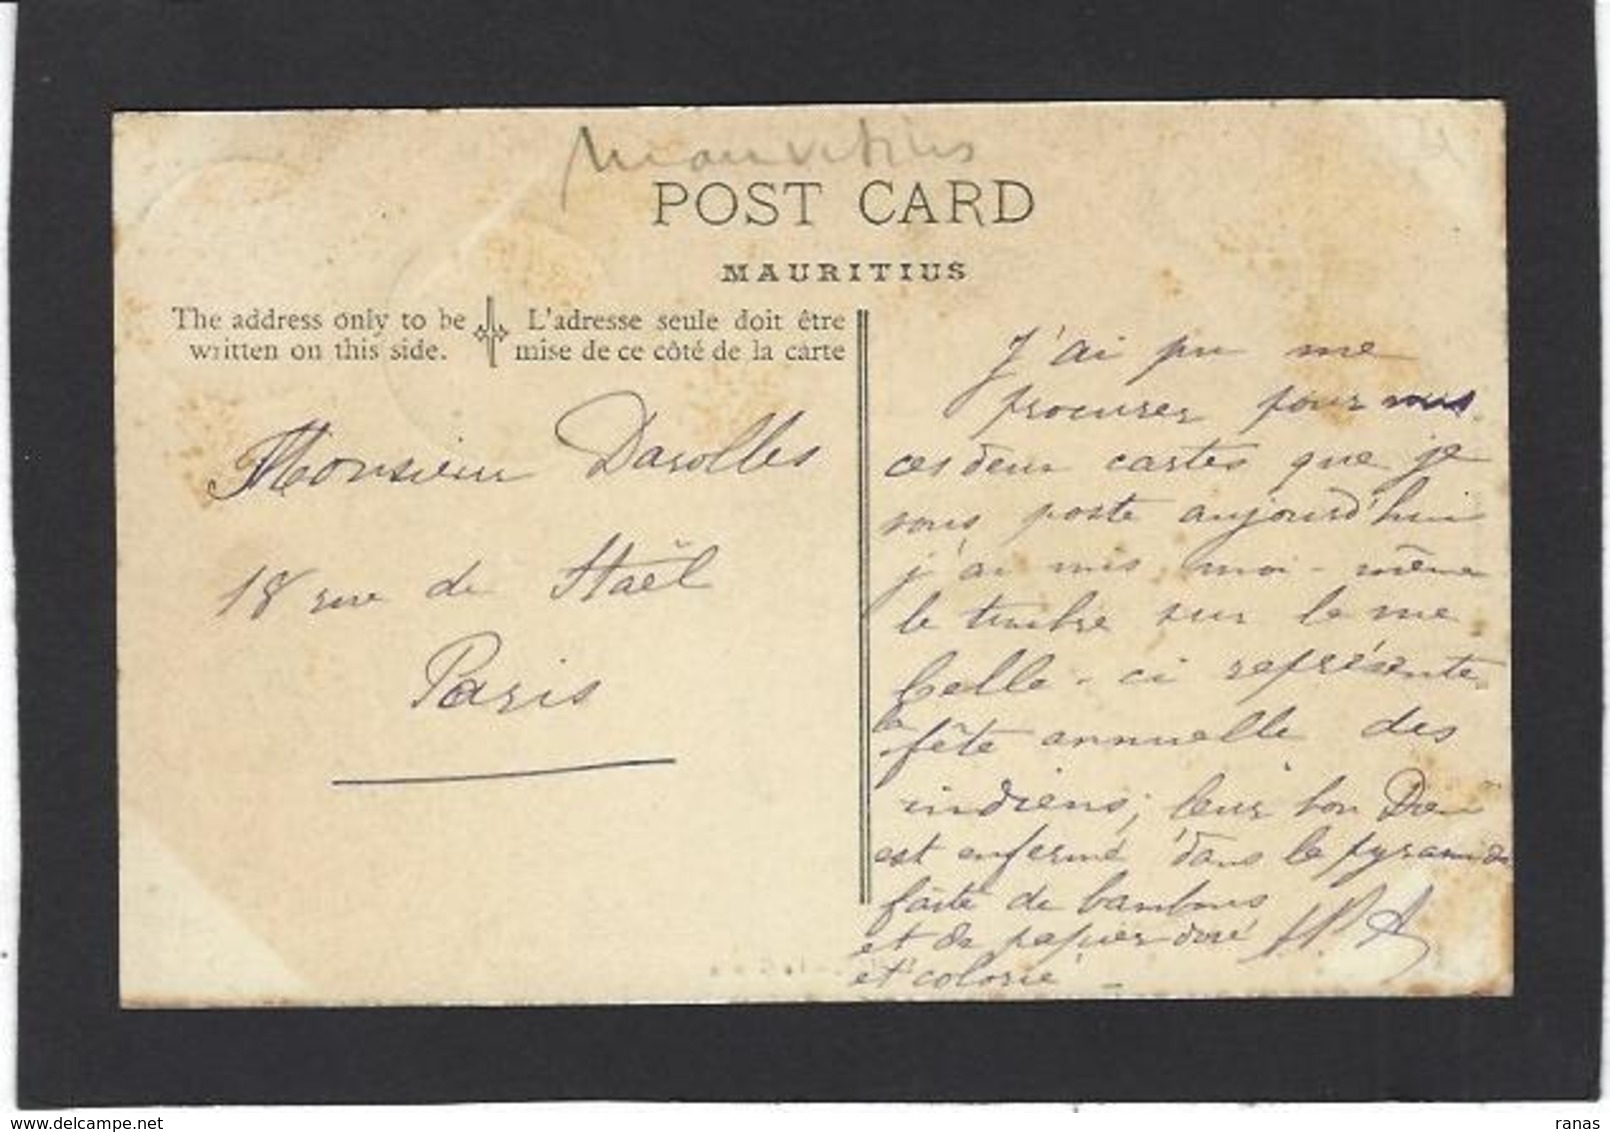 Mauritius
POST CARD
MAURITIUS
The address only to be
written on this side.
L'adresse seule doit être
mise de ce côté de la carte
Monsieur Darolles
18 rue de Staël
Paris
J'ai pu me
procurer pour vous
ces deux cartes que je
vous poste aujourd'hui
j'ai mis moi-même
le timbre sur la
Celle-ci représente
la
fête annuelle des
indiens; leur bon Dieu
est enfermé dans la pyramide
faite de bambous
et de papier doré
et colorié
delcampe.net
ranas